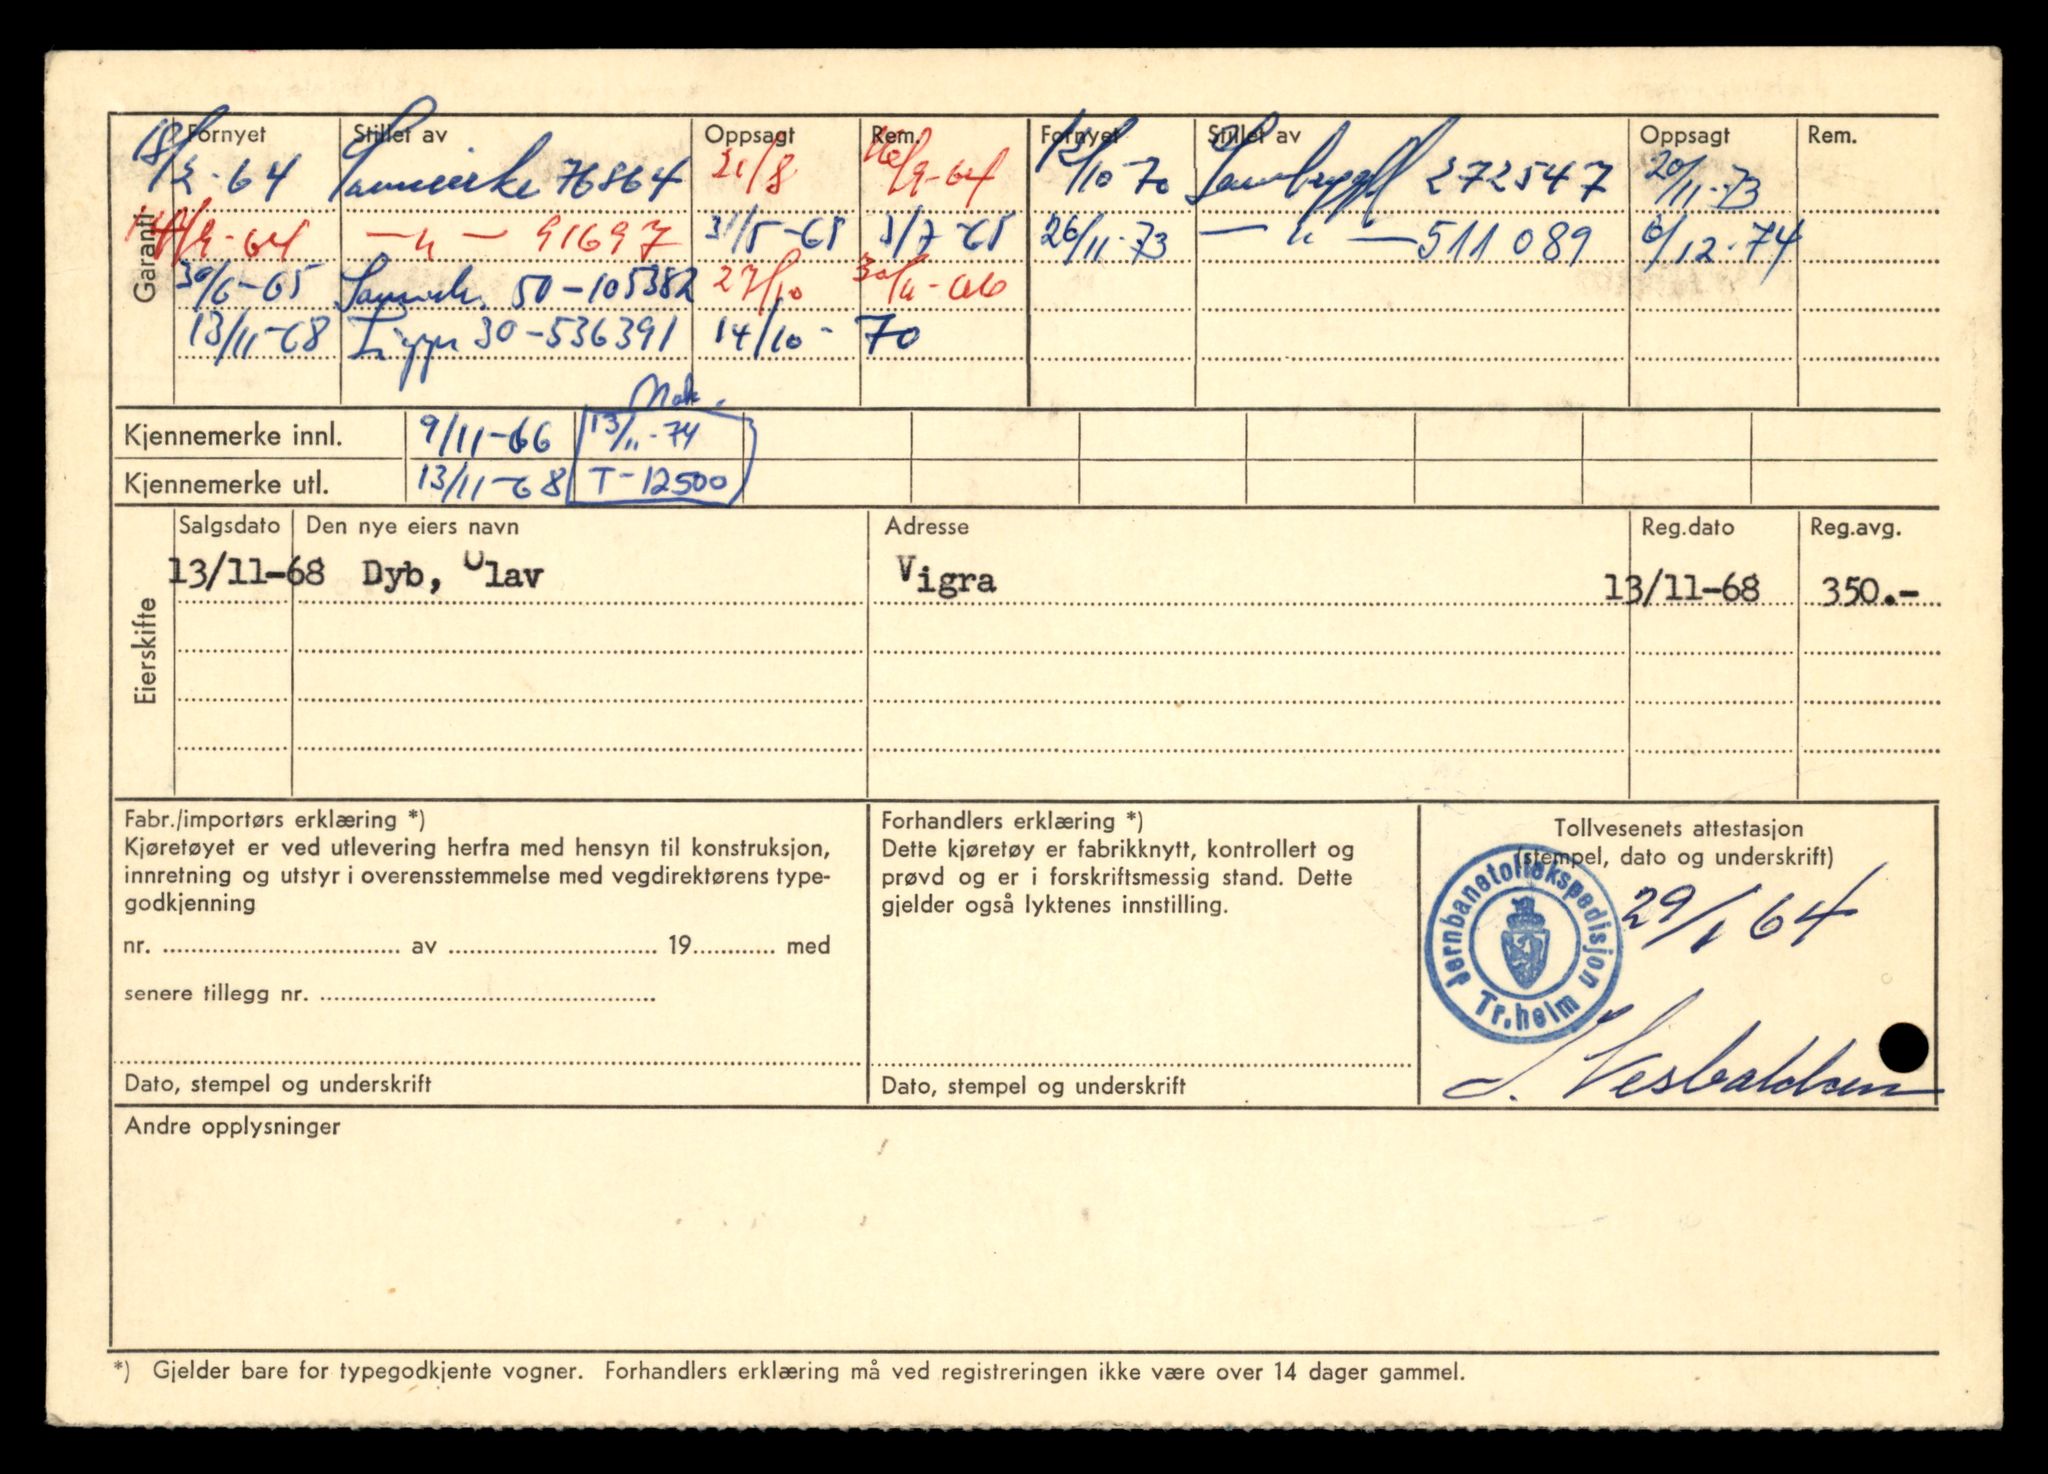 Garanti
Fornyet Stillet av Oppsagt Rem. Fornyet Stillet av Oppsagt Rem.
18/2-64 Samvirke 76864 21/8 16/9-64 12/10 70 272547 20/11-73
14/9-64 — " — 91697 31/5-65 3/7-65 26/11-73 — " — 511089 6/12-74
30/6-65 Samvirk. 50-105382 27/10 30/11-66
13/11-68 30-536391 14/10- 70
Kjennemerke innl. 9/11-66 13/11-74
Kjennemerke utl. 13/11-68 T-12500
Eierskifte
Salgsdato Den nye eiers navn Adresse Reg.dato Reg.avg.
13/11-68 Dyb, Olav Vigra 13/11-68 350.-
Fabr./importørs erklæring *)
Kjøretøyet er ved utlevering herfra med hensyn til konstruksjon,
innretning og utstyr i overensstemmelse med vegdirektørens type-
godkjenning
nr. ........ av ........ 19........ med
senere tillegg nr. ........
Dato, stempel og underskrift
Forhandlers erklæring *)
Dette kjøretøy er fabrikknytt, kontrollert og
prøvd og er i forskriftsmessig stand. Dette
gjelder også lyktenes innstilling.
Dato, stempel og underskrift
Tollvesenets attestasjon
(stempel, dato og underskrift)
Jernbanetollekspedisjon
Tr.heim
29/1 64
Andre opplysninger
*) Gjelder bare for typegodkjente vogner. Forhandlers erklæring må ved registreringen ikke være over 14 dager gammel.